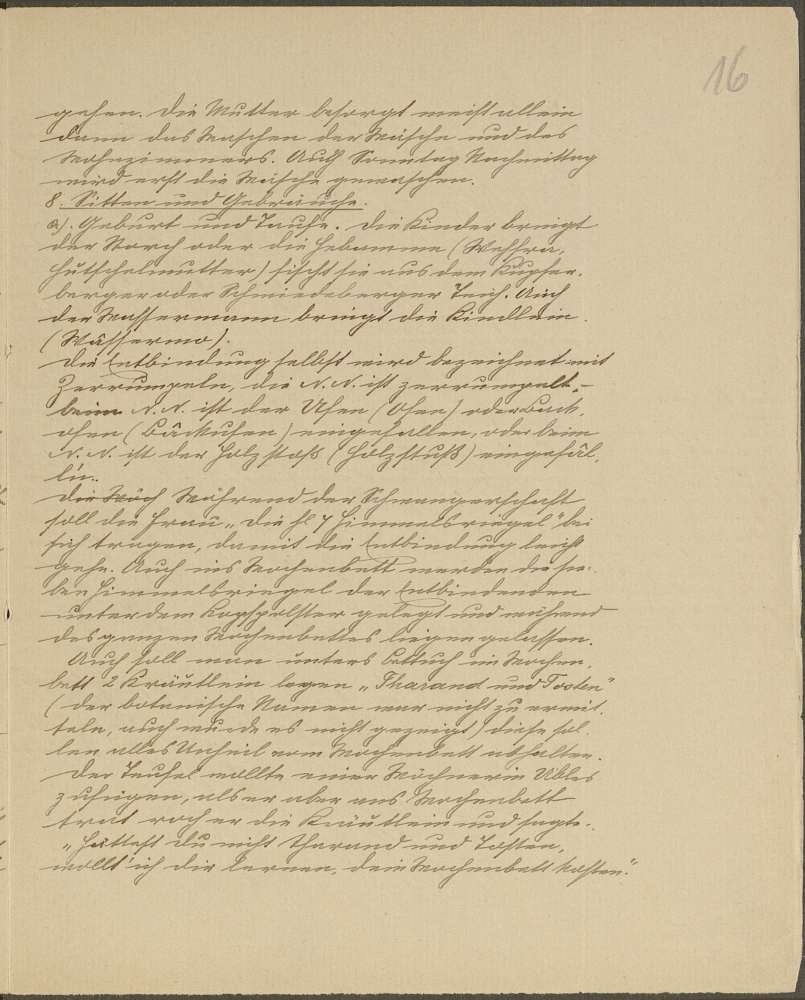 16
gehen. Die Mutter besorgt meist allein
dann das Waschen der Wäsche und des
Wohnzimmers. Auch Sonntag Nachmittag
wird erst die Wäsche gewaschen.
8. Sitten und Gebräuche.
a). Geburt und Taufe. Die Kinder bringt
der Storch oder die Hebamme (Wehfra,
Hutschelmutter) fischt sie aus dem Kupfer-
berger oder Schmiedeberger Teich. Auch
der Wassermann bringt die Kindlein.
(Wåssermo).
Die Entbindung selbst wird bezeichnet mit
Zerrumpeln, die N. N. ist zerrumpelt, –
beim N. N. ist der Ufen (Ofen) oder Back-
ofen (Båckufen) eingefallen, oder beim
N. N. ist der Holzstoß (Holzstuß) eingefål-
ln.
Die Wöch Während der Schwangerschaft
soll die Frau „die hl 7 Himmelsriegel" bei
sich tragen, damit die Entbindung leicht
gehe. Auch ins Wochenbett werden die sie-
ben Himmelsriegel der Entbindenden
unter dem Kopfpolster gelegt und während
des ganzen Wochenbettes liegen gelassen.
Auch soll man unters Bettuch im Wochen-
bett 2 Kräutlein legen „Tharand und Tosten"
(der botanische Namen war nicht zu ermit-
teln, auch wurde es nicht gezeigt) diese sol-
len alles Unheil vom Wochenbett abhalten.
Der Teufel wollte einer Wöchnerin Übles
zufügen, als er aber ans Wochenbett
trat roch er die Kräutlein und sagte:
„Hättest du nicht Tharand und Tosten,
wollt' ich dir lernen, dein Wochenbett kosten."